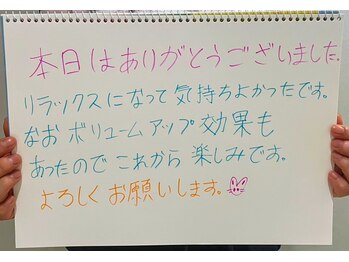 本日はありがとうございました。
リラックスになって気持ちよかったです。
なお ボリュームアップ効果も
あったので これから 楽しみです。
よろしく お願いします。